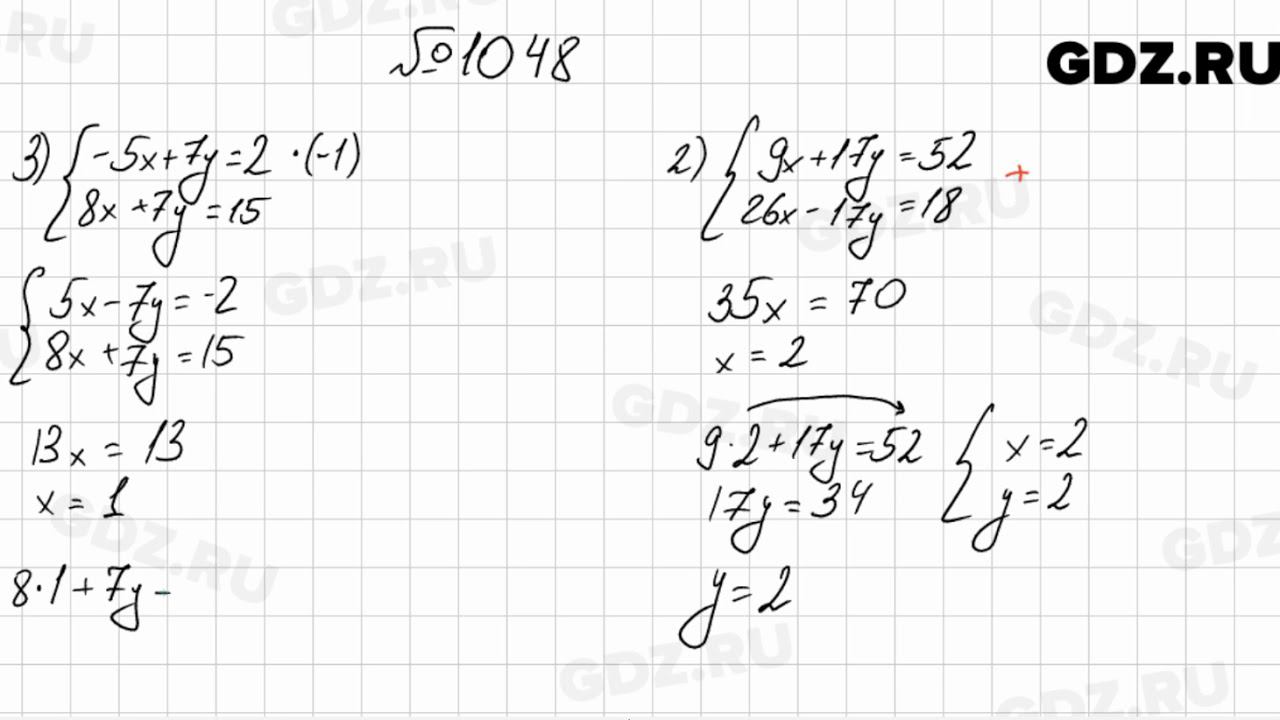 №1048
GDZ.RU
3) { -5x+7y=2 ·(-1)
8x+7y=15
{ 5x-7y=-2
8x+7y=15
13x=13
x=1
8·1+7y-
2) { 9x+17y=52 +
26x-17y=18
35x=70
x=2
9·2+17y=52
17y=34
y=2
{ x=2
y=2
GDZ.RU
GDZ.RU
GDZ.RU
GDZ.RU
GDZ.RU
GDZ.RU
GDZ.RU
GDZ.RU
GDZ.RU